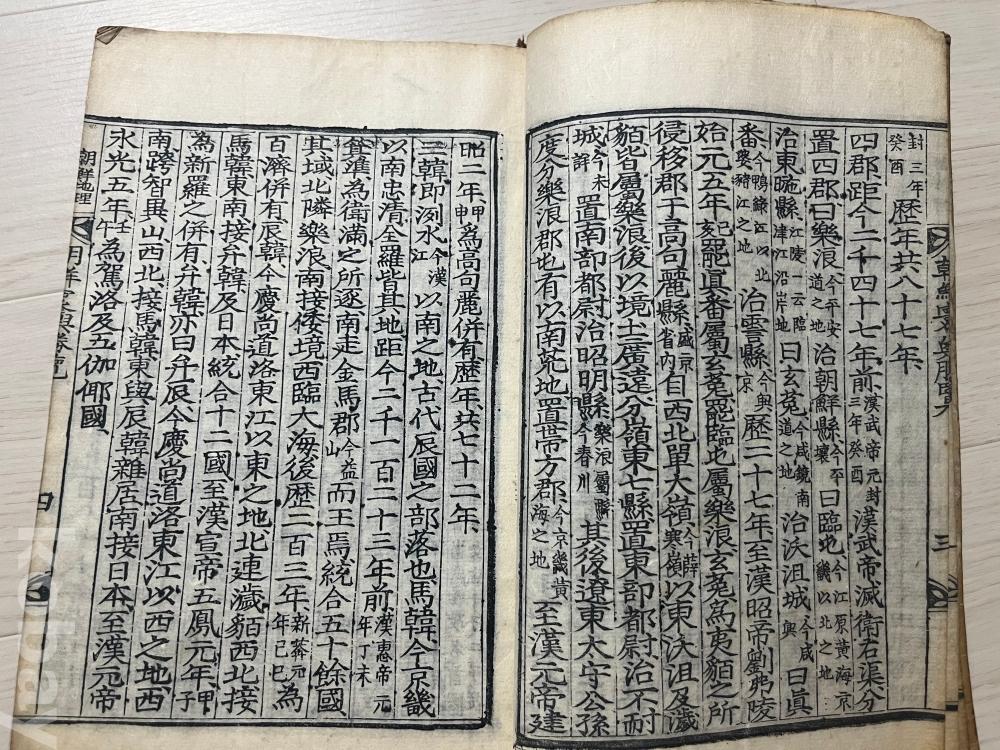 封三年癸酉歷年共八十七年
四郡距今二千四十七年前漢武帝元封三年癸酉漢武帝滅衛右渠分
置四郡曰樂浪今平安道之地治朝鮮縣今平壤曰臨屯今江原黃海京畿以北之地
治東暆縣江陵云臨津江沿岸地曰玄菟今咸鏡南道之地治沃沮城今咸興曰眞
番今鴨綠江以北婆豬江之地治霅縣今興京歷二十七年至漢昭帝劉弗陵
始元五年己亥罷眞番屬玄菟罷臨屯屬樂浪玄菟爲夷貊之所
侵移郡于高句麗縣今盛京省內自西北單大嶺今薛寒嶺以東沃沮及濊
貊皆屬樂浪後以境土廣遠分嶺東七縣置東部都尉治不耐
城今未詳置南部都尉治昭明縣樂浪屬縣今春川其後遼東太守公孫
度分樂浪郡屯有以南荒地置帶方郡今京畿黃海之地至漢元帝建
三
昭二年甲申爲高句麗併有歷年共七十二年
三韓即洌水今漢江以南之地古代辰國之部落也馬韓今京畿
以南忠淸全羅皆其地距今二千一百二十三年前漢惠帝元年丁未
箕準為衛滿之所逐南走金馬郡今益山而王焉統合五十餘國
其域北隣樂浪南接倭境西臨大海後歷二百三年新莽元年己巳為
百濟併有辰韓今慶尚道洛東江以東之地北連濊貊西北接
馬韓東南接弁韓及日本統合十二國至漢宣帝五鳳元年甲子
為新羅之併有弁韓亦曰弁辰今慶尚道洛東江以西之地西
南跨智異山西北接馬韓東與辰韓雜居南接日本至漢元帝
永光五年壬午為駕洛及五伽倻國
朝鮮地理
四
Kobay